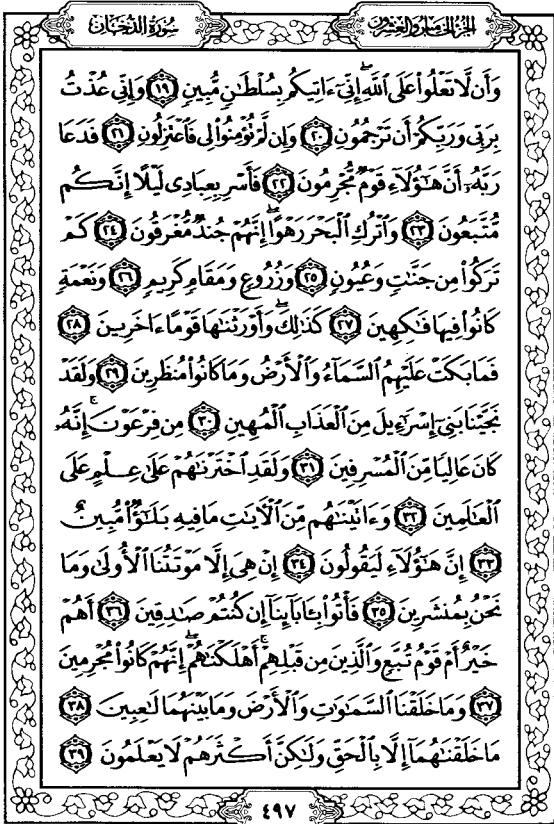 الجزء الخامس والعشرون
سورة الدخان
وَأَن لَّا تَعْلُوا۟ عَلَى ٱللَّهِ ۖ إِنِّىٓ ءَاتِيكُم بِسُلْطَـٰنٍ مُّبِينٍ ﴿١٩﴾ وَإِنِّى عُذْتُ
بِرَبِّى وَرَبِّكُمْ أَن تَرْجُمُونِ ﴿٢٠﴾ وَإِن لَّمْ تُؤْمِنُوا۟ لِى فَٱعْتَزِلُونِ ﴿٢١﴾ فَدَعَا
رَبَّهُۥٓ أَنَّ هَـٰٓؤُلَآءِ قَوْمٌ مُّجْرِمُونَ ﴿٢٢﴾ فَأَسْرِ بِعِبَادِى لَيْلًا إِنَّكُم
مُّتَّبَعُونَ ﴿٢٣﴾ وَٱتْرُكِ ٱلْبَحْرَ رَهْوًا ۖ إِنَّهُمْ جُندٌ مُّغْرَقُونَ ﴿٢٤﴾ كَمْ
تَرَكُوا۟ مِن جَنَّـٰتٍ وَعُيُونٍ ﴿٢٥﴾ وَزُرُوعٍ وَمَقَامٍ كَرِيمٍ ﴿٢٦﴾ وَنَعْمَةٍ
كَانُوا۟ فِيهَا فَـٰكِهِينَ ﴿٢٧﴾ كَذَٰلِكَ ۖ وَأَوْرَثْنَـٰهَا قَوْمًا ءَاخَرِينَ ﴿٢٨﴾
فَمَا بَكَتْ عَلَيْهِمُ ٱلسَّمَآءُ وَٱلْأَرْضُ وَمَا كَانُوا۟ مُنظَرِينَ ﴿٢٩﴾ وَلَقَدْ
نَجَّيْنَا بَنِىٓ إِسْرَٰٓءِيلَ مِنَ ٱلْعَذَابِ ٱلْمُهِينِ ﴿٣٠﴾ مِن فِرْعَوْنَ ۚ إِنَّهُۥ
كَانَ عَالِيًا مِّنَ ٱلْمُسْرِفِينَ ﴿٣١﴾ وَلَقَدِ ٱخْتَرْنَـٰهُمْ عَلَىٰ عِلْمٍ عَلَى
ٱلْعَـٰلَمِينَ ﴿٣٢﴾ وَءَاتَيْنَـٰهُم مِّنَ ٱلْـَٔايَـٰتِ مَا فِيهِ بَلَـٰٓؤٌا۟ مُّبِينٌ
﴿٣٣﴾ إِنَّ هَـٰٓؤُلَآءِ لَيَقُولُونَ ﴿٣٤﴾ إِنْ هِىَ إِلَّا مَوْتَتُنَا ٱلْأُولَىٰ وَمَا
نَحْنُ بِمُنشَرِينَ ﴿٣٥﴾ فَأْتُوا۟ بِـَٔابَآئِنَآ إِن كُنتُمْ صَـٰدِقِينَ ﴿٣٦﴾ أَهُمْ
خَيْرٌ أَمْ قَوْمُ تُبَّعٍ وَٱلَّذِينَ مِن قَبْلِهِمْ ۚ أَهْلَكْنَـٰهُمْ ۖ إِنَّهُمْ كَانُوا۟ مُجْرِمِينَ
﴿٣٧﴾ وَمَا خَلَقْنَا ٱلسَّمَـٰوَٰتِ وَٱلْأَرْضَ وَمَا بَيْنَهُمَا لَـٰعِبِينَ ﴿٣٨﴾
مَا خَلَقْنَـٰهُمَآ إِلَّا بِٱلْحَقِّ وَلَـٰكِنَّ أَكْثَرَهُمْ لَا يَعْلَمُونَ ﴿٣٩﴾
٤٩٧